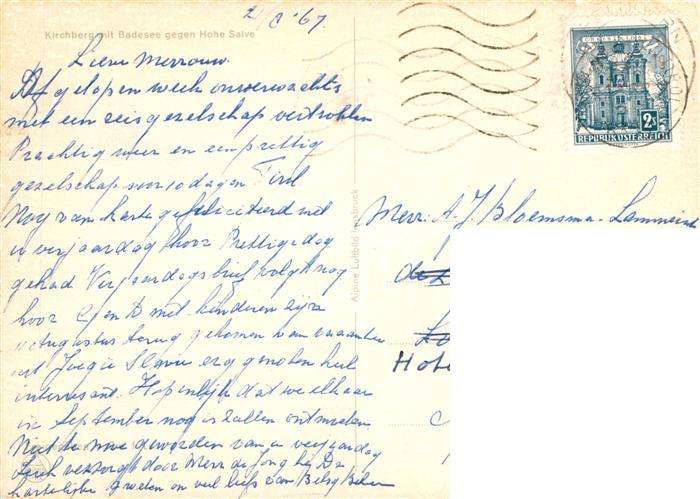 2/8 '67
Kirchberg mit Badesee gegen Hohe Salve
Lieve Mevrouw
Af gelopen week onverwachts
met een reisgezelschap vertrokken
Prachtig weer en een prettig
gezelschap voor 10 dagen Tirol
Nog van harte gefeliciteerd met
u verjaardag hoor Prettige dag
gehad Verjaardagsbrief volgt nog
hoor en D met kinderen zijn
Augustus terug gekomen van vacantie
uit Joego Slavie erg genoten heel
interresant. Hopenlijk dat we elkaar
in September nog zullen ontmoeten
Niet te moe geworden van u verjaardag
Leuk verzorgt door Mevr de Jong hé Da
hartelijke groeten en veel liefs van
Alpine Luftbild Innsbruck
2 S
REPUBLIK ÖSTERREICH
Mevr. A. J. Bloemsma-Lammeins
de
Hote